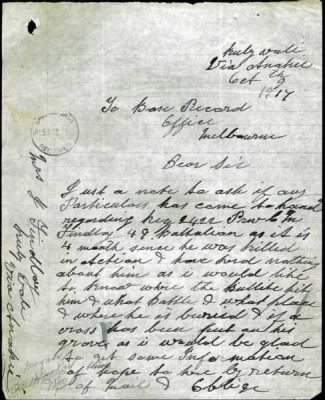 Via Anakie
Oct
1917
To Base Record
Office
Melbourne
Dear Sir
Just a note to ask if any
Particulars has come to hand
regarding
Findlay 49 Battalion as it is
4 month since he was killed
in Action & I have hord nothing
about him as i would like
to know where the bullite hit
him & what Battle & what place
& where he is burried & if a
cross has been put on his
grave as i would be glad
to get some Information
hope to see by return
of mail & Oblige
Mrs J Findlay
Via Anakie